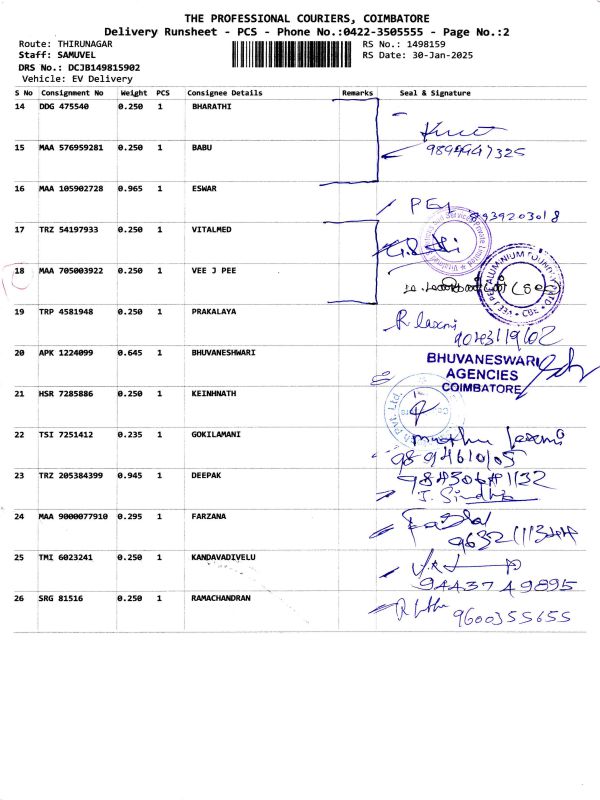 THE PROFESSIONAL COURIERS, COIMBATORE
Delivery Runsheet - PCS - Phone No.:0422-3505555 - Page No.:2
Route: THIRUNAGAR
RS No.: 1498159
Staff: SAMUVEL
RS Date: 30-Jan-2025
DRS No.: DCJB149815902
Vehicle: EV Delivery
S No Consignment No Weight PCS Consignee Details Remarks Seal & Signature
14 DDG 475540 0.250 1 BHARATHI
15 MAA 576959281 0.250 1 BABU
16 MAA 105902728 0.965 1 ESWAR
17 TRZ 54197933 0.250 1 VITALMED
18 MAA 705003922 0.250 1 VEE J PEE
19 TRP 4581948 0.250 1 PRAKALAYA
R laxmi
20 APK 1224099 0.645 1 BHUVANESHWARI
BHUVANESWARI
AGENCIES
COIMBATORE
21 HSR 7285886 0.250 1 KEINHNATH
22 TSI 7251412 0.235 1 GOKILAMANI
9894610105
23 TRZ 205384399 0.945 1 DEEPAK
24 MAA 9000077910 0.295 1 FARZANA
25 TMI 6023241 0.250 1 KANDAVADIVELU
9443749895
26 SRG 81516 0.250 1 RAMACHANDRAN
9600355655